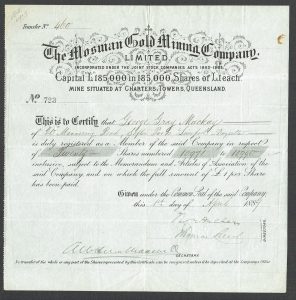 Transfer No. 460
The Mosman Gold Mining Company,
LIMITED.
INCORPORATED UNDER THE JOINT STOCK COMPANIES ACTS 1862-1883.
Capital £185,000 in 185,000 Shares of £1 each.
MINE SITUATED AT CHARTERS TOWERS, QUEENSLAND.
No. 723
This is to Certify that George Gray Mackay
of
is duly registered as a Member of the said Company in respect
of Twenty Shares numbered to
inclusive, subject to the Memorandum and Articles of Association of the
said Company and on which the full amount of £1 per Share
has been paid.
Given under the Common Seal of the said Company
this 1st day of April 1889
DIRECTORS.
SECRETARY.
No transfer of the whole or any part of the Shares represented by this Certificate can be recognised unless it be deposited at the Company's Office.